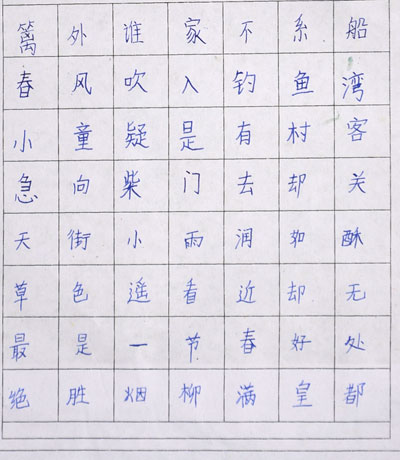 篱外谁家不系船
春风吹入钓鱼湾
小童疑是有村客
急向柴门去却关
天街小雨润如酥
草色遥看近却无
最是一节春好处
绝胜烟柳满皇都